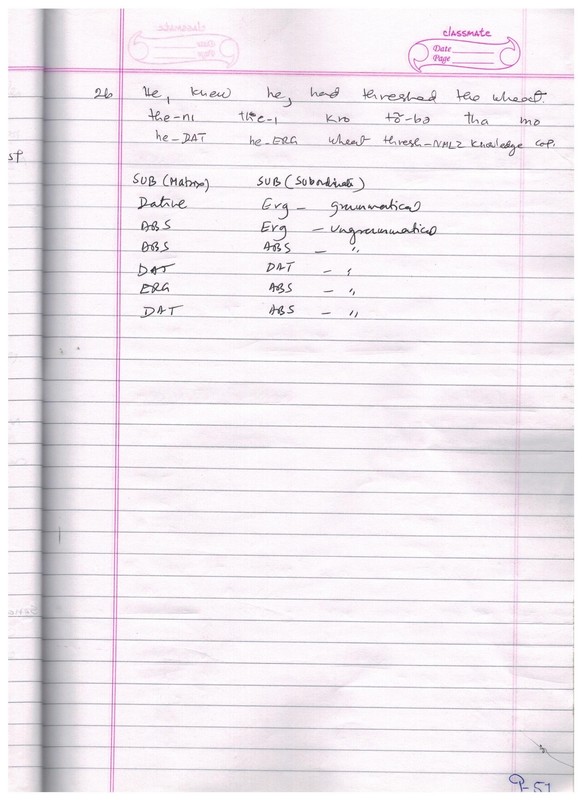 classmate
Date
Page
26 He, knew he, had threshed the wheat.
the-ni the-i kro tõ-bə tha mo
he-DAT he-ERG wheat thresh-NML2 knowledge cop.
SUB (Matrix) SUB (Subordinate)
Dative Erg - grammatical
ABS Erg - ungrammatical
ABS ABS - "
DAT DAT - "
ERG ABS - "
DAT ABS - "
P-51